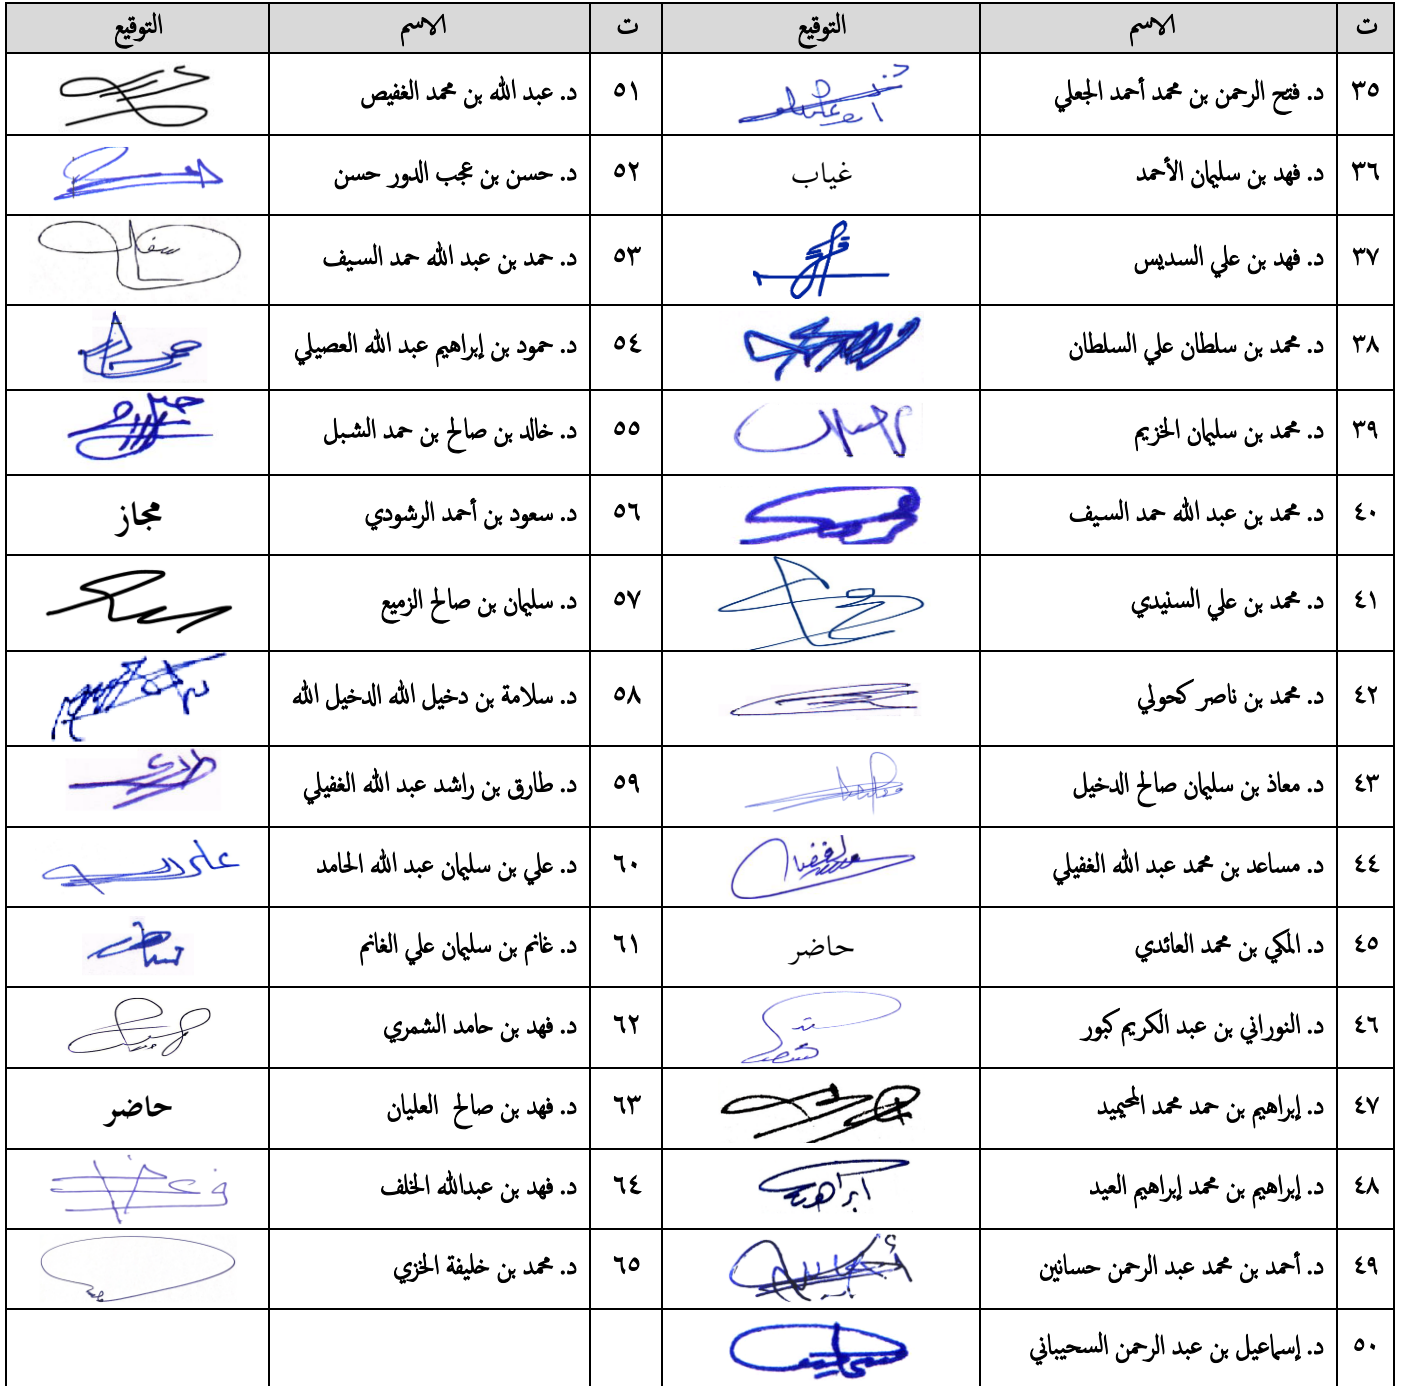 ت الاسم التوقيع ت الاسم التوقيع
٣٥ د. فتح الرحمن بن محمد أحمد الجعلي ٥١ د. عبد الله بن محمد الغفيص
٣٦ د. فهد بن سليمان الأحمد غياب ٥٢ د. حسن بن عجب الدور حسن
٣٧ د. فهد بن علي السديس ٥٣ د. حمد بن عبد الله حمد السيف
٣٨ د. محمد بن سلطان علي السلطان ٥٤ د. حمود بن إبراهيم عبد الله العصيلي
٣٩ د. محمد بن سليمان الخزيم ٥٥ د. خالد بن صالح بن حمد الشبل
٤٠ د. محمد بن عبد الله حمد السيف ٥٦ د. سعود بن أحمد الرشودي مجاز
٤١ د. محمد بن علي السنيدي ٥٧ د. سليمان بن صالح الزميع
٤٢ د. محمد بن ناصر كحولي ٥٨ د. سلامة بن دخيل الله الدخيل الله
٤٣ د. معاذ بن سليمان صالح الدخيل ٥٩ د. طارق بن راشد عبد الله الغفيلي
٤٤ د. مساعد بن محمد عبد الله الغفيلي ٦٠ د. علي بن سليمان عبد الله الحامد
٤٥ د. المكي بن محمد العائدي حاضر ٦١ د. غانم بن سليمان علي الغانم
٤٦ د. النوراني بن عبد الكريم كبور ٦٢ د. فهد بن حامد الشمري
٤٧ د. إبراهيم بن حمد محمد المحيميد ٦٣ د. فهد بن صالح العليان حاضر
٤٨ د. إبراهيم بن محمد إبراهيم العيد ٦٤ د. فهد بن عبدالله الخلف
٤٩ د. أحمد بن محمد عبد الرحمن حسانين ٦٥ د. محمد بن خليفة الخزي
٥٠ د. إسماعيل بن عبد الرحمن السحيباني